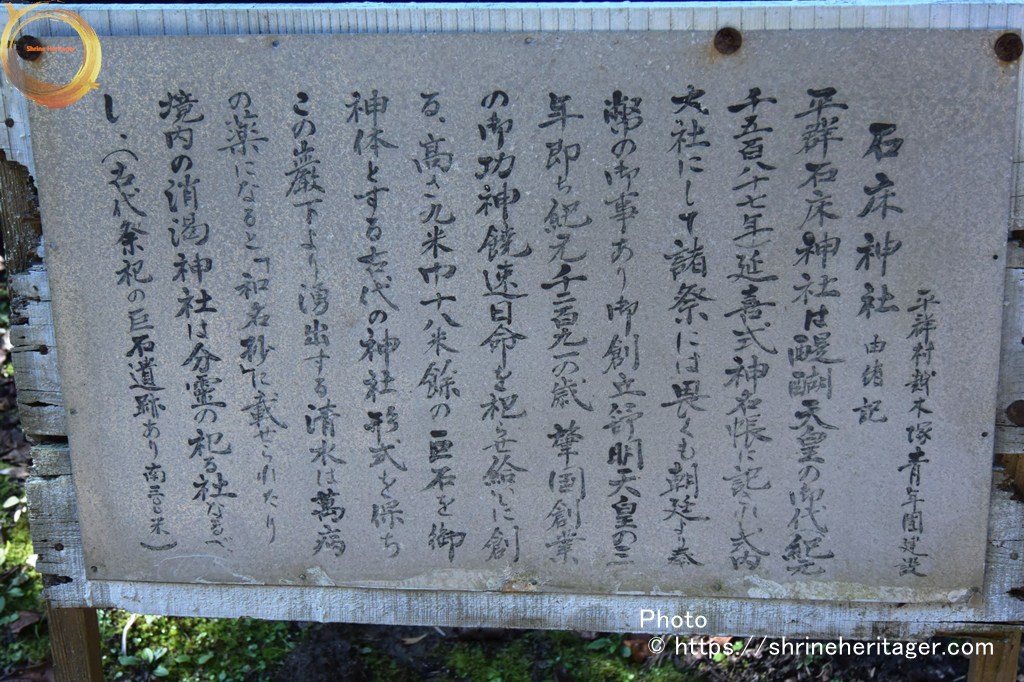 石床神社 由緒記
平群村越木塚青年団建設
平群石床神社は醍醐天皇の御代紀元
千五百八十七年延喜式神名帳に記され式内
大社にして諸祭には畏くも朝廷より奉
幣の御事あり御創立舒明天皇の三
年即ち紀元千二百九一の歳 肇国創業
の御功神饒速日命を祀らせ給いに創
る、高さ九米巾十八米餘の巨石を御
神体とする古代の神社形式を保ち
この巌下より湧出する清水は萬病
の薬になると「和名抄」に載せられたり
境内の消渇神社は分霊の祀る社なるべ
し、(古代祭祀の巨石遺跡あり南三〇〇米)
Shrine Heritager
Photo
© https://shrineheritager.com/